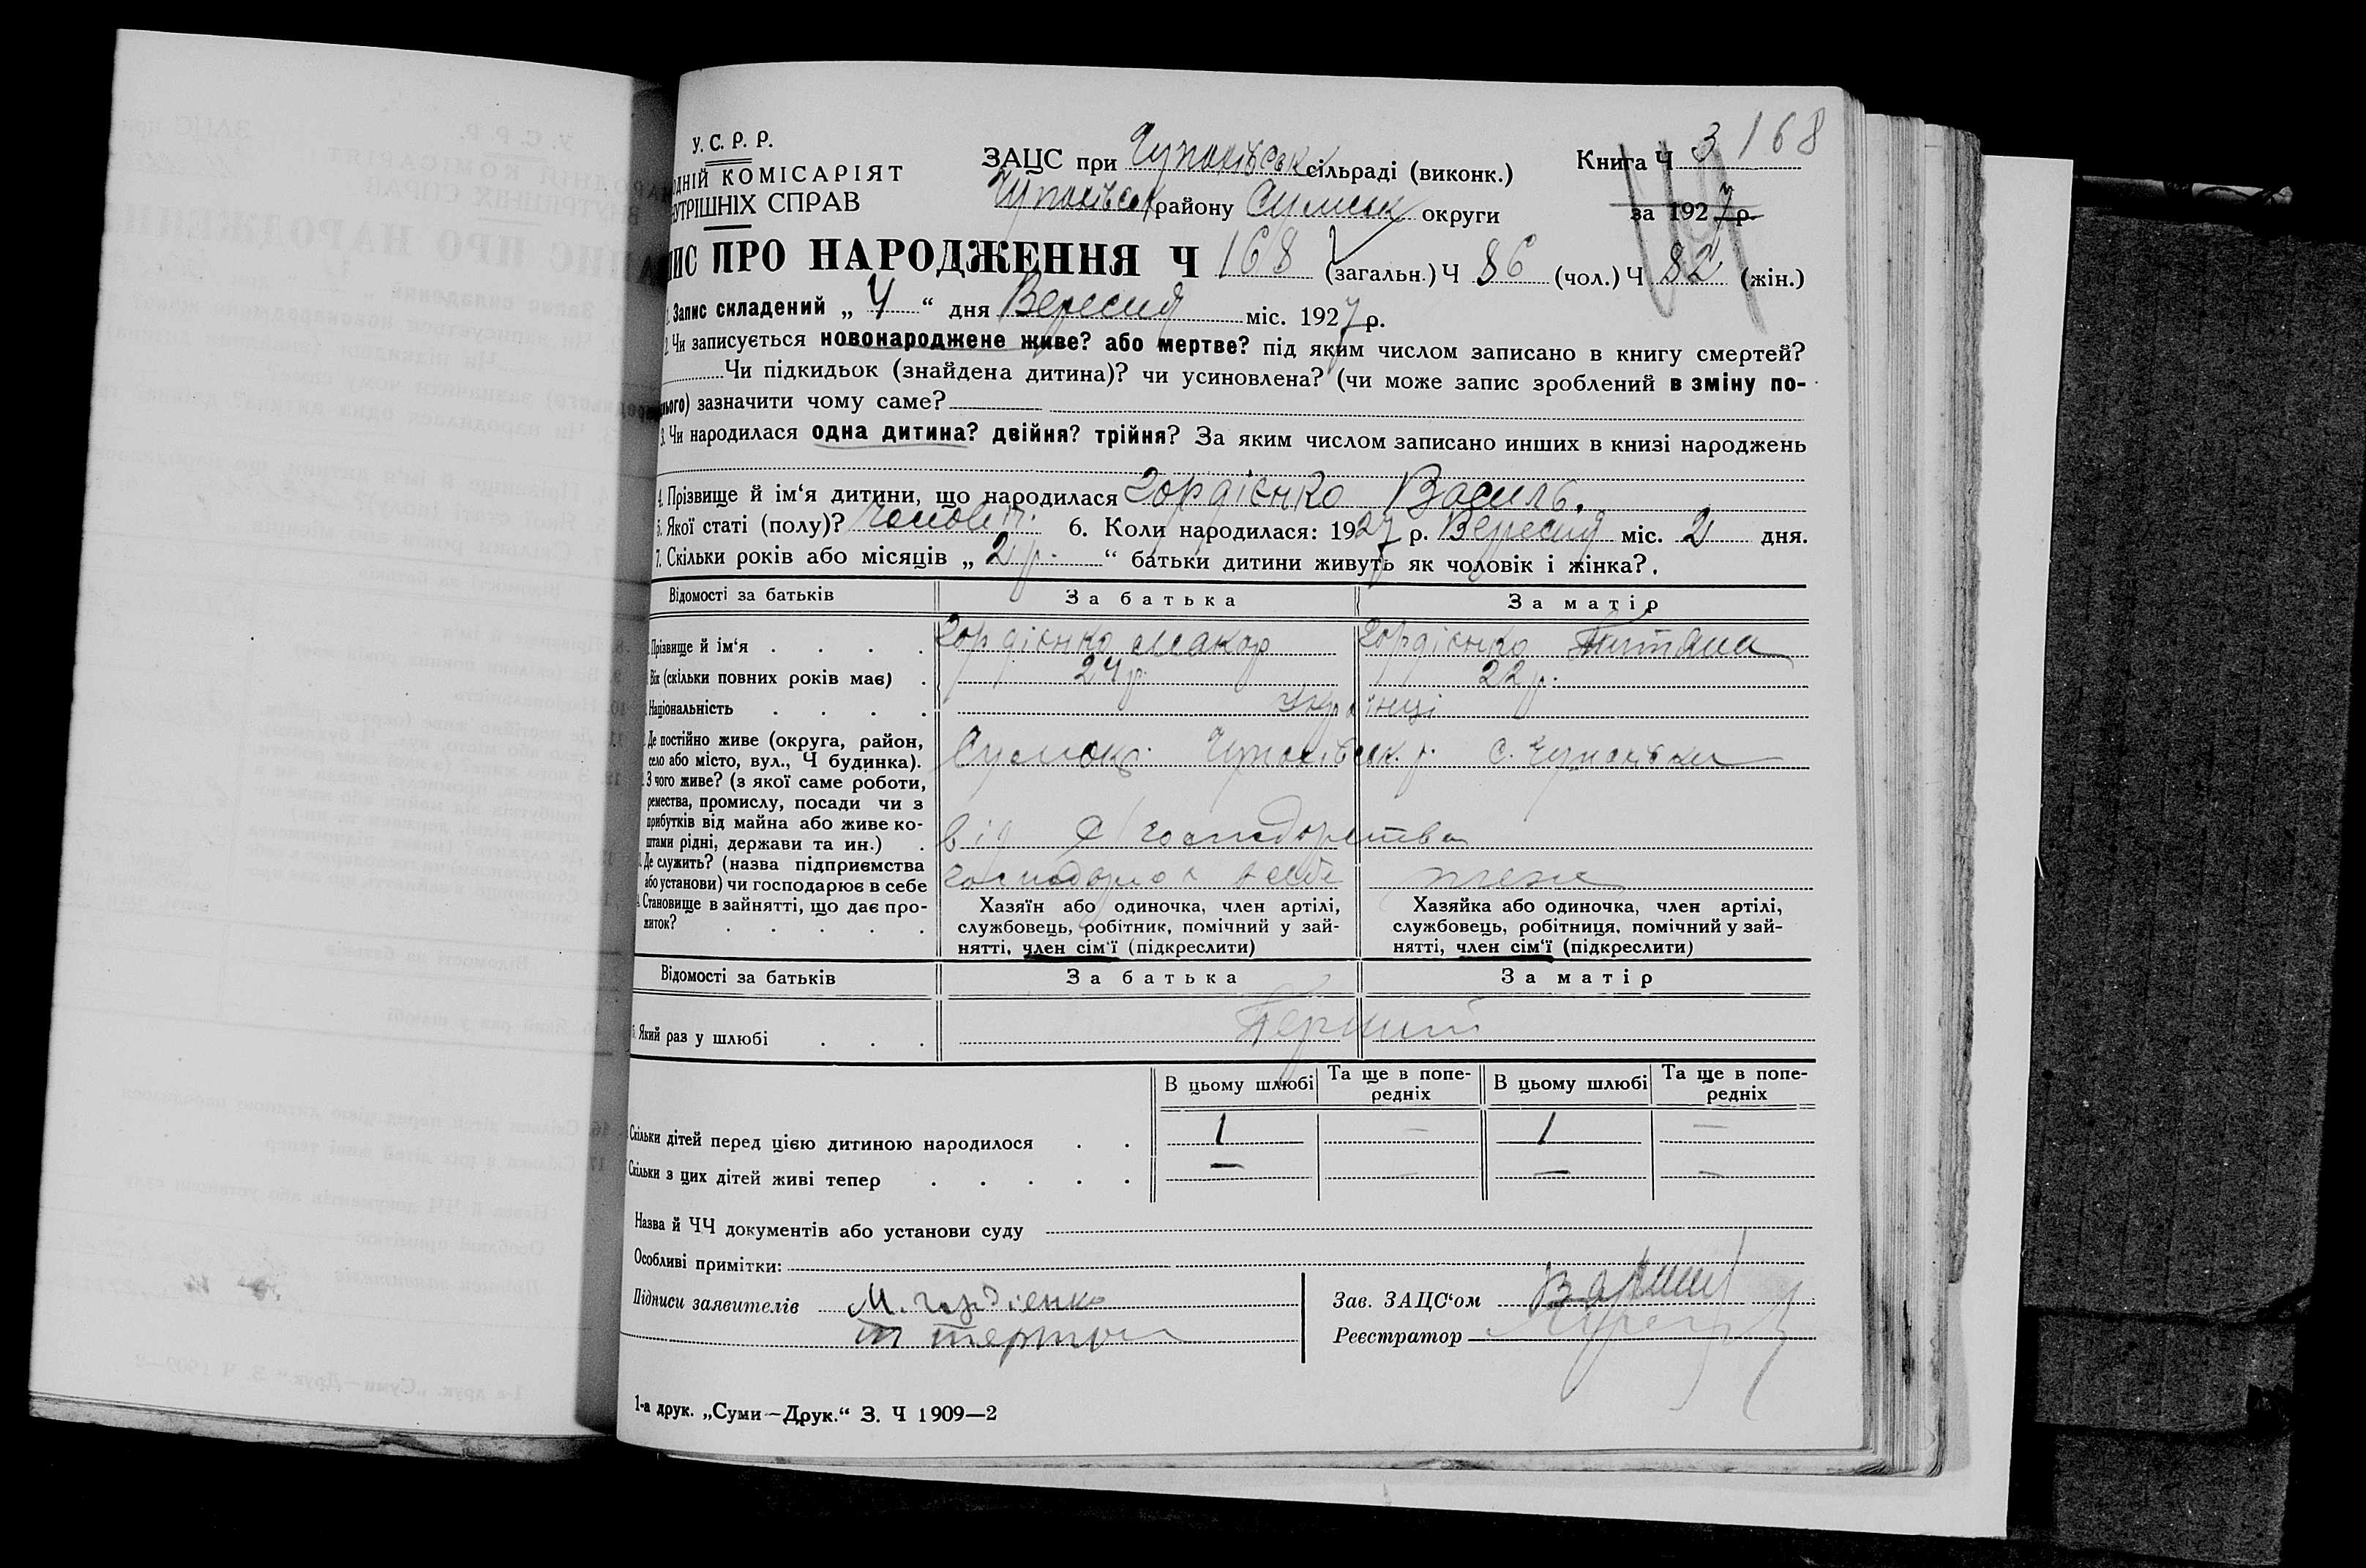 168
У. С. Р. Р.
ОДНІЙ КОМІСАРІЯТ
УТРІШНІХ СПРАВ
ЗАЦС при Чупахівськ сільраді (виконк.)
Чупахівськ району Сумськ округи
Книга Ч 3
за 1927 р.
ИС ПРО НАРОДЖЕННЯ Ч 168 (загальн.) Ч 86 (чол.) Ч 82 (жін.)
1. Запис складений „ 4 “ дня Вересня міс. 1927 р.
2. Чи записується новонароджене живе? або мертве? під яким числом записано в книгу смертей?
Чи підкидьок (знайдена дитина)? чи усиновлена? (чи може запис зроблений в зміну по-
нього) зазначити чому саме?
3. Чи народилася одна дитина? двійня? трійня? За яким числом записано инших в книзі народжень
4. Прізвище й ім‘я дитини, що народилася Гордієнко Василь.
5. Якої статі (полу)? чоловіч. 6. Коли народилася: 1927 р. Вересня міс. 2 дня.
7. Скільки років або місяців „ 2 р. “ батьки дитини живуть як чоловік і жінка?
Відомості за батьків За батька За матір
Прізвище й ім‘я Гордієнко Макар Гордієнко Титяна
Вік (скільки повних років має) 24 р. 22 р.
Національність Українці
Де постійно живе (округа, район,
село або місто, вул., Ч будинка). Сумськ. Чупахівськ. р. с. Чупахівка
З чого живе? (з якої саме роботи,
ремества, промислу, посади чи з
прибутків від майна або живе ко-
штами рідні, держави та ин.) від с/господарства
Де служить? (назва підприємства
або установи) чи господарює в себе господарює в себе теж
Становище в зайнятті, що дає про-
житок?
Хазяїн або одиночка, член артілі,
службовець, робітник, помічний у зай-
нятті, член сім‘ї (підкреслити)
Хазяйка або одиночка, член артілі,
службовець, робітниця, помічний у зай-
нятті, член сім‘ї (підкреслити)
Відомості за батьків За батька За матір
Який раз у шлюбі Перший
В цьому шлюбі Та ще в попе-
редніх В цьому шлюбі Та ще в попе-
редніх
Скільки дітей перед цією дитиною народилося 1 — 1 —
Скільки з цих дітей живі тепер — — — —
Назва й ЧЧ документів або установи суду
Особливі примітки:
Підписи заявителів М. Гордіенко
Зав. ЗАЦС‘ом
Реєстратор
1-а друк. „Суми—Друк.“ З. Ч 1909—2